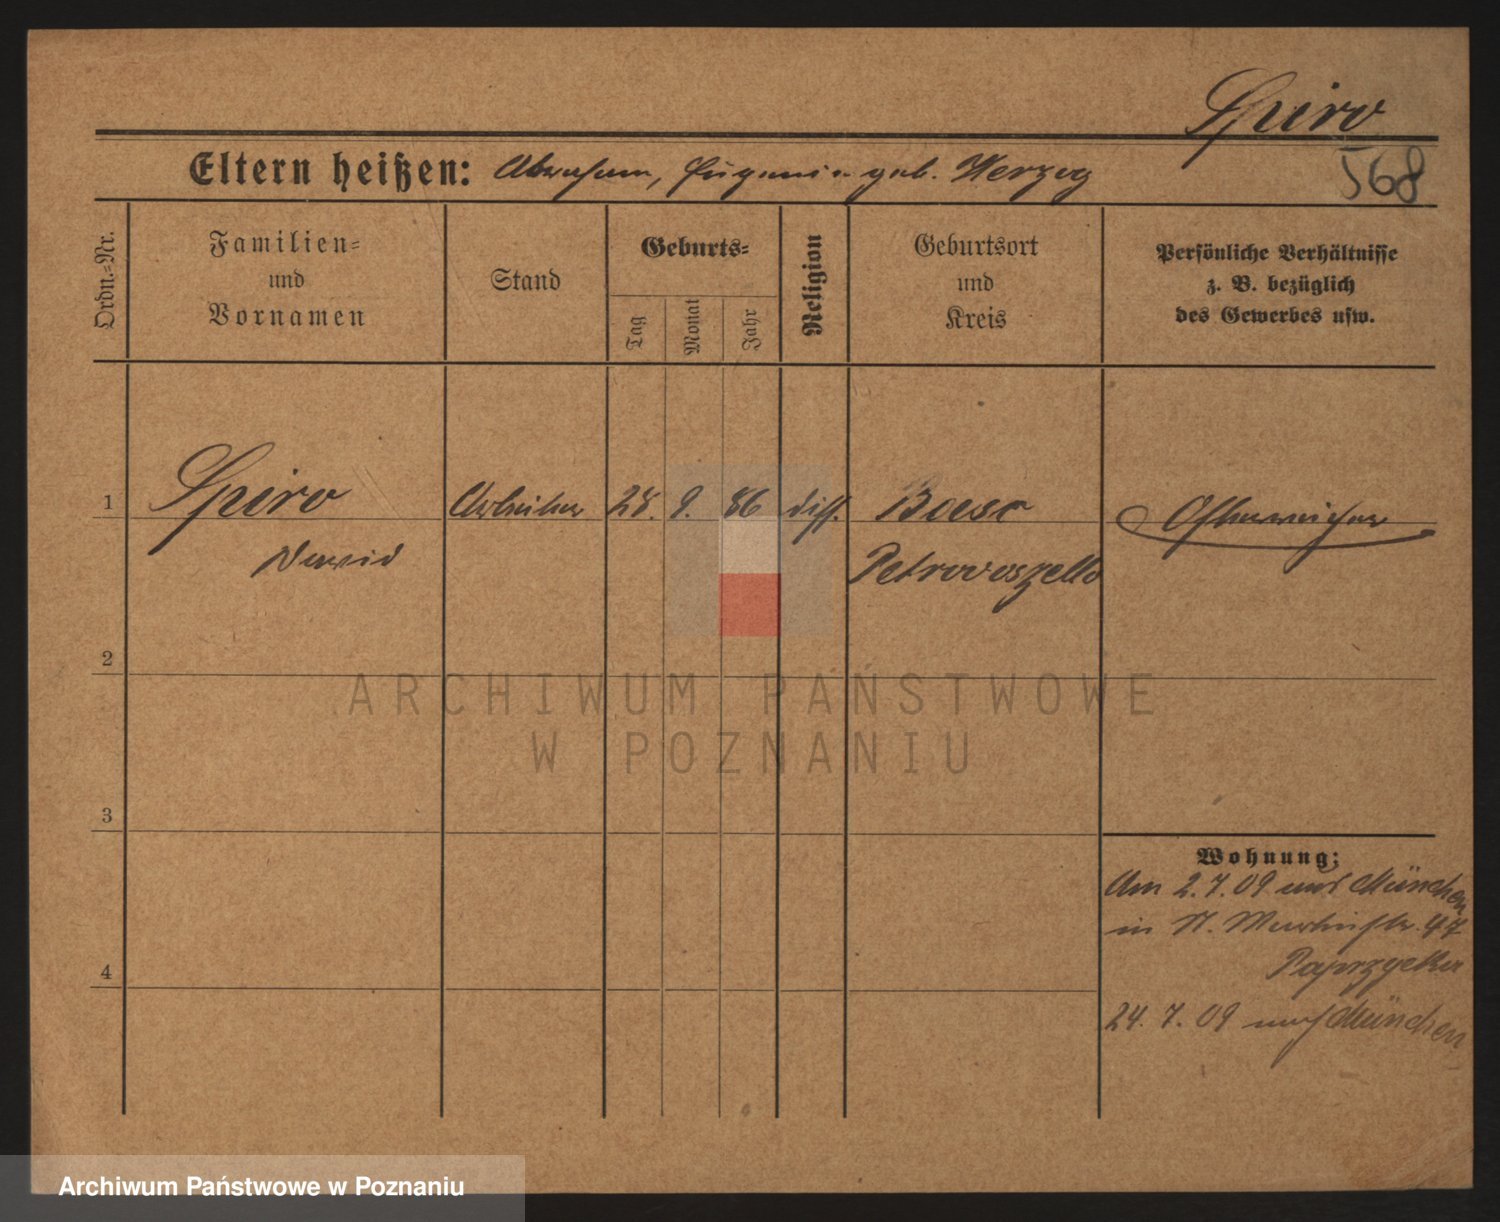 Spiro
568
Eltern heißen: Abraham, Eugenie geb. Herzog
Ordn.=Nr.
Familien=
und
Vornamen
Stand
Geburts=
Tag
Monat
Jahr
Religion
Geburtsort
und
Kreis
Persönliche Verhältnisse
z. B. bezüglich
des Gewerbes usw.
1
Spiro
David
Arbeiter
28. 9. 86
diss.
Petrovoszello
2
3
4
Wohnung:
Am 2.7.09 aus München
in St. Martinstr. 47
24. 7. 09 nach München
ARCHIWUM PAŃSTWOWE
W POZNANIU
Archiwum Państwowe w Poznaniu